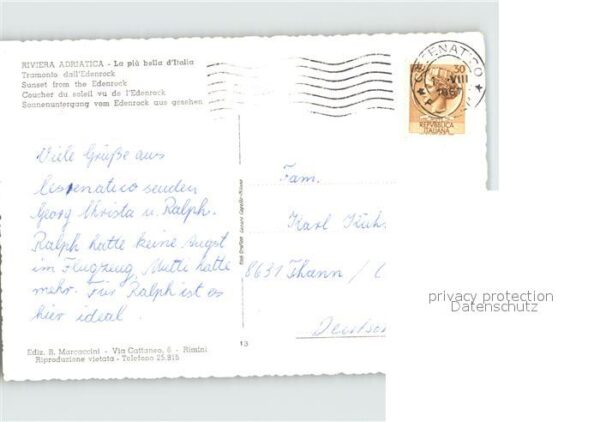 RIVIERA ADRIATICA - La più bella d'Italia
Tramonto dall'Edenrock
Sunset from the Edenrock
Coucher du soleil vu de l'Edenrock
Sonnenuntergang vom Edenrock aus gesehen
CESENATICO
30
VIII
1967
REPVBBLICA
ITALIANA
Viele Grüße aus
Cessenatico senden
Georg Christa u. Ralph.
Ralph hatte keine Angst
im Flugzeug, Mutti hatte
mehr. Für Ralph ist es
hier ideal.
Fam.
Karl
8631 Thann /
Deutsch
Ediz. B. Marcaccini - Via Cattaneo, 6 - Rimini
Riproduzione vietata - Telefono 25.815
13
privacy protection
Datenschutz